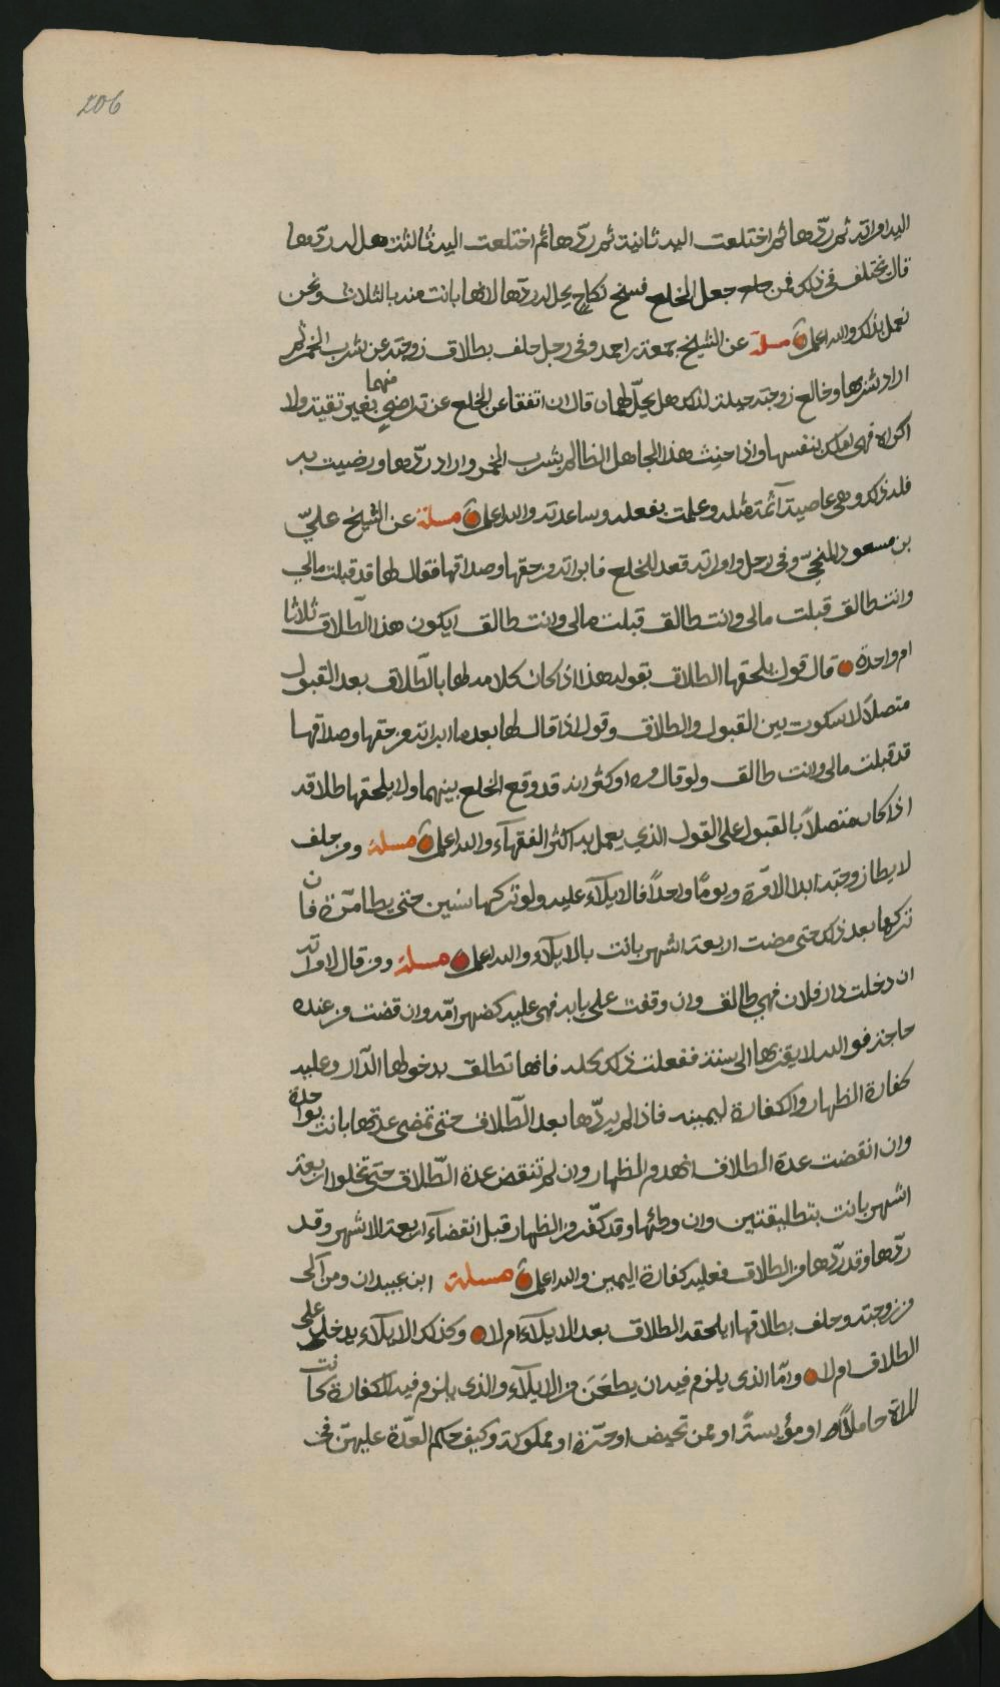 206
اليه امراته ثم ردّها ثم اختلعت اليه ثانية ثم ردّها ثم اختلعت اليه ثالثة هل له ردّها
قال يختلف في ذلك فمن جعل الخلع فسخ نكاح يحل له ردّها لا انها بانت منه بالثلاث ونحن
نعمل بذلك والله اعلم مسلة عن الشيخ جمعة بن احمد وفي رجل حلف بطلاق زوجته عن شرب الخمر ثم
اراد شربها وخالع زوجته حيلة لذلك هل يحلّ لهما قال ان اتفقا على الخلع عن تراضي منهما بغير تقية ولا
اكراه فهي املك بنفسها واذا حنث هذا الجاهل الظالم بشرب الخمر واراد ردّها ورضيت به
فله ذلك وهي عاصية آثمة مثله وعلمت بفعله وساعدته والله اعلم مسلة عن الشيخ عليّ
بن مسعود المنجيّ وفي رجل وامراته قعد للخلع فابراته من حقها وصداقها فقال لها قد قبلت مالي
وانت طالق قبلت مالي وانت طالق قبلت مالي وانت طالق ايكون هذا الطّلاق ثلاثا
ام واحدة قال قول يلحقها الطلاق بقوله هذا اذا كان كلامه لها بالطّلاق بعد القبول
متصلاً لا سكوت بين القبول والطلاق وقول اذا قال لها بعد ما ابراته من حقها وصداقها
قد قبلت مالي وانت طالق ولو قال مره او كثر انه قد وقع الخلع بينهما ولا يلحقها طلاقه
اذا كان متصلاً بالقبول على القول الذي يعمل به اكثر الفقهآء والله اعلم مسلة ومن حلف
لا يطا زوجته ابدا الا مرّة ويومًا واحدًا فالايلآء عليه ولو تركها سنين حتى يطا مرّة فان
تركها بعد ذلك حتى مضت اربعة اشهر بانت بالايلآء والله اعلم مسلة ومن قال لامراته
ان دخلت دار فلان فهي طالق وان وقفت على بابه فهي عليه كظهر امّه وان قضت من عنده
حاجة فوالله لا يقربها الى سنة ففعلت ذلك كله فانها تطلق بدخولها الدّار وعليه
كفارة الظهار والكفارة ليمينه فاذا لم يردّها بعد الطّلاق حتى تمضى عدّتها بانت بواحدة
وان انقضت عدة الطلاق انهدم الظهار وان لم تنقض عدة الطّلاق حتى تخلوا اربعة
اشهر بانت بتطليقتين وان وطئها وقد كفّر من الظهار قبل انقضآء اربعة الاشهر وقد
ردّها وقد ردّها من الطلاق فعليه كفارة اليمين والله اعلم مسلة ابن عبيدان ومن آلى
من زوجته وحلف بطلاقها ايلحقه الطلاق بعد الايلآء ام لا وكذلك الايلآء يدخل على
الطلاق ام لا وامّا الذي يلزم فيه ان يطعن من الايلآء والذي يلزم فيه الكفارة كانت
المراة حاملاً او مؤيسةً او ممن تحيض او حرّة او مملوكة وكيف حكم العدّة عليهن في